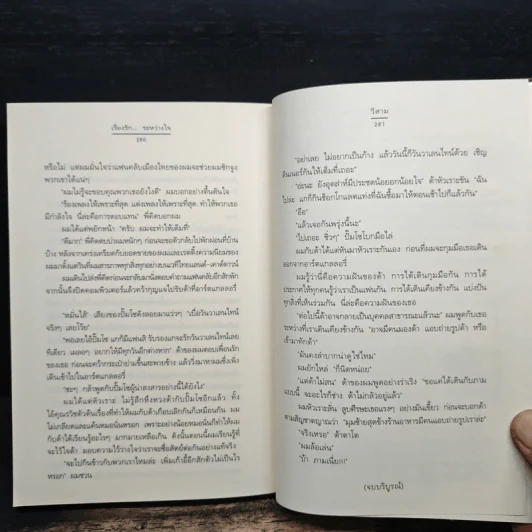 เรื่องรัก... ระหว่างใจ
280
หรือไม่ แต่ผมมั่นใจว่าแฟนคลับเมืองไทยของผมจะช่วยผมชักจูง
พวกเขาได้แน่ๆ
"ผมไม่รู้จะขอบคุณพวกเธอยังไงดี" ผมบอกอย่างตื้นตันใจ
"ร้องเพลงให้เพราะที่สุด แต่งเพลงให้เพราะที่สุด ทำให้พวกเรา
มีกำลังใจ นี่ล่ะคือการตอบแทน" พี่คิตบอกผม
ผมได้แต่พยักหน้า "ครับ ผมจะทำให้เต็มที่"
"ดีมาก" พี่คิตตบบ่าผมหนักๆ ก่อนจะขอตัวกลับไปพักผ่อนที่บ้าน
บ้าง หลังจากเคร่งเครียดกับยอดขายของผมและเรตติ้งความนิยมของ
ผมเดินไปส่งพี่คิตก่อนจะกลับมานั่งตอบคำถามแฟนคลับอีกสักพัก
จากนั้นจึงปิดคอมพิวเตอร์แล้วคว้ากุญแจไปรับต้าที่อาร์ตแกลลอรี่
"หมั่นไส้" เสียงของปั๊มโซโล่ลอยมาแว่วๆ "เบื่อวันวาเลนไทน์
จริงๆ เลยโว้ย"
"พอเลยไอ้ปั๊มโซ แกก็มีแฟนสิ รับรองแกจะรักวันวาเลนไทน์เลย
ทีเดียว เผลอๆ อยากให้มีทุกวันอีกต่างหาก" ต้าของผมตอบเพื่อนรัก
ของเธอ ก่อนจะคว้ากระเป๋าย่ามขึ้นสะพายข้าง แล้ววิ่งมาหาผมซึ่งเพิ่ง
เดินเข้าไปในอาร์ตแกลลอรี่
"ชะๆ กล้าพูดกับปั๊มโซผู้น่าสงสารอย่างนี้ได้ยังไง"
ผมได้แต่หัวเราะ ไม่รู้สึกหึงหวงต้ากับปั๊มโซอีกแล้ว ทั้ง
ไม่เกลียดและแค้นหมอนั่นหรอก เพราะอย่างน้อยหมอนั่นก็ทำให้ผม
กับต้าได้เรียนรู้อะไรๆ มากมายเหลือเกิน ดังนั้นตอนนี้ผมเรียนรู้ที่
จะไว้ใจต้า มอบความไว้วางใจว่าเราจะซื่อสัตย์ต่อกันอย่างแท้จริง
"จะไปกินข้าวกับพวกเราไหมล่ะ เพิ่มเก้าอี้อีกสักตัวไม่เป็นไร
หรอก" ผมชวน
วิสาม
281
"อย่าเลย ไม่อยากเป็นก้าง แล้ววันนี้ก็วันวาเลนไทน์ด้วย เชิญ
ดินเนอร์กันให้เต็มที่เถอะ"
"อ่ะนะ ยังอุตส่าห์มีประชดน้อยอกน้อยใจ" ต้าหัวเราะขัน "ฉัน
ไปล่ะ แกก็กินช็อกโกแลตแท่งที่ฉันซื้อมาให้ตอนเช้าไปก็แล้วกัน"
"อือ"
"แล้วเจอกันพรุ่งนี้นะ"
"ไปเถอะ ชิ่วๆ" ปั๊มโซโบกมือไล่
ผมกับต้าได้แต่หันมาหัวเราะกันเอง ก่อนที่ผมจะกุมมือเธอเดิน
ออกจากอาร์ตแกลลอรี่
ผมรู้ว่านี่คือความฝันของต้า การได้เดินกุมมือกัน การได้
ประกาศให้ทุกคนรู้ว่าเราเป็นแฟนกัน การได้เดินเคียงข้างกัน แบ่งปัน
ทุกสิ่งที่เห็นร่วมกัน นี่ล่ะคือความฝันของเธอ
"ต่อไปนี้ต้าอาจกลายเป็นบุคคลสาธารณะแล้วนะ" ผมพูดกับเธอ
ระหว่างที่เราเดินเคียงข้างกัน "อาจมีคนมองต้า แอบถ่ายรูปต้า หรือ
เข้ามาทักต้า"
"มันคงลำบากน่าดูใช่ไหม"
ผมยักไหล่ "ก็นิดหน่อย"
"แต่ต้าไม่สน" ต้าของผมพูดอย่างร่าเริง "ขอแค่ได้เดินกับภาม
แบบนี้ จะอะไรก็ช่าง ต้าไม่กลัวอยู่แล้ว"
ผมหัวเราะลั่น ลูบศีรษะเธอแรงๆ อย่างมันเขี้ยว ก่อนจะบอกต้า
ตามสัญชาตญาณว่า "มุมซ้ายสุดข้างร้านอาหารมีคนแอบถ่ายรูปเราล่ะ"
"จริงเหรอ" ต้าตาโต
"ผมล้อเล่น"
"บ้า ภามเนี่ย!!!"
(จบบริบูรณ์)